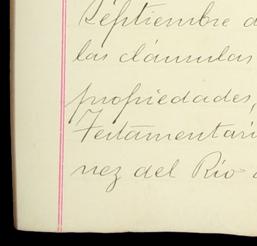 Septiembre d
las cláusulas
propiedades,
Testamentari
nez del Río